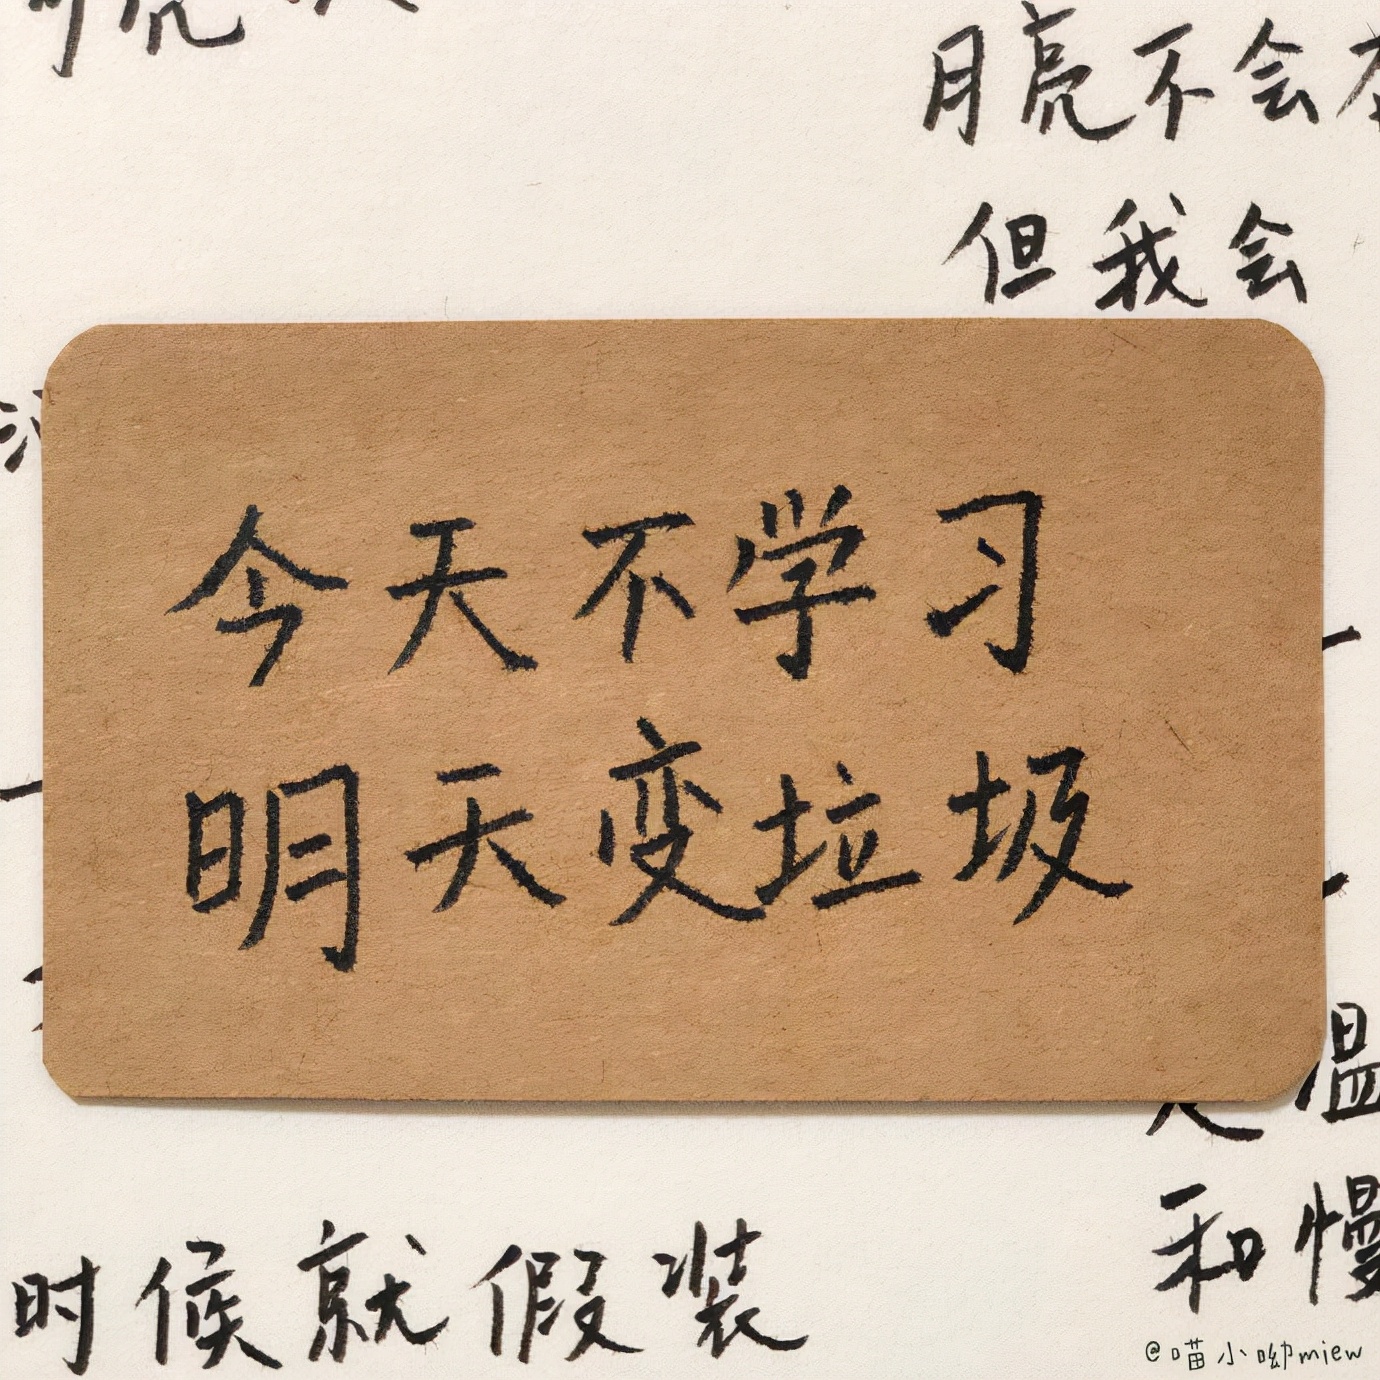 月亮不会
但我会
今天不学习
明天变垃圾
温
和慢
时候就假装
@喵小呦miew